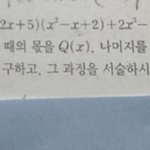 2x+5)(x²-x+2)+2x³-
때의 몫을 Q(x), 나머지를
구하고, 그 과정을 서술하시